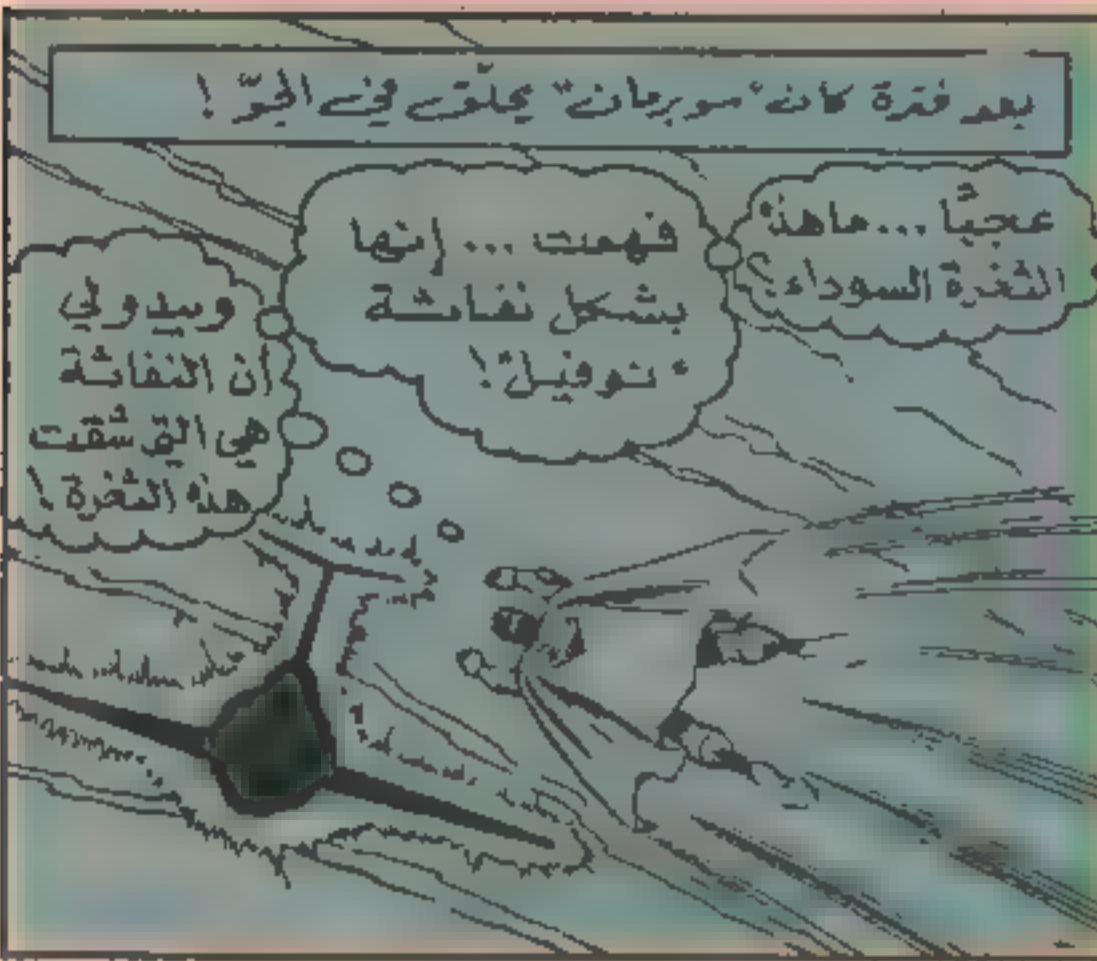 بعد فترة كان "سوبرمان" يحلّق في الجوّ !
عجبًا ... ما هذه
الثغرة السوداء؟
فهمت ... إنها
بشكل نفاثة
"نوفيل"!
ويبدو لي
أن النفاثة
هي التي شقت
هذه الثغرة !